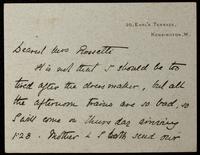 20, EARL'S TERRACE,
KENSINGTON, W.
Dearest Mrs Rossetti
It is not that I should be too
tired after the dressmaker, but all
the afternoon trains are so bad, so
I will come on Thursday arriving
1.23. Mother & I both send our